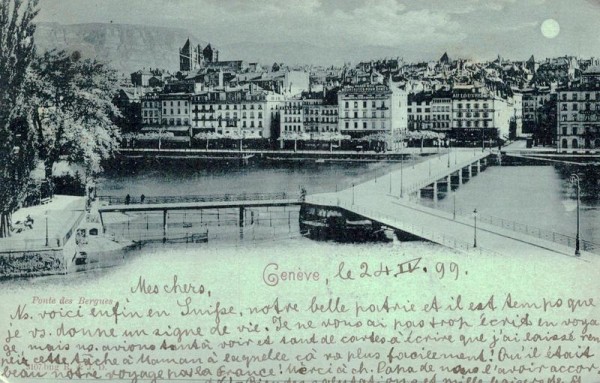 Genève, le 24 IV. 99.
Mes chers,
Ponts des Bergues
Ns. voici enfin en Suisse, notre belle patrie et il est temps que
je vs. donne un signe de vie. Je ne vous ai pas trop écrit en voya
ge, mais ns. avions tant à voir et tant de cartes à écrire que j'ai laissé ren
cette tâche à Maman à laquelle ça va plus facilement! Qu'il était
beau notre voyage par la France! Merci à ch. Papa de nous l'avoir accor
salutations et mille